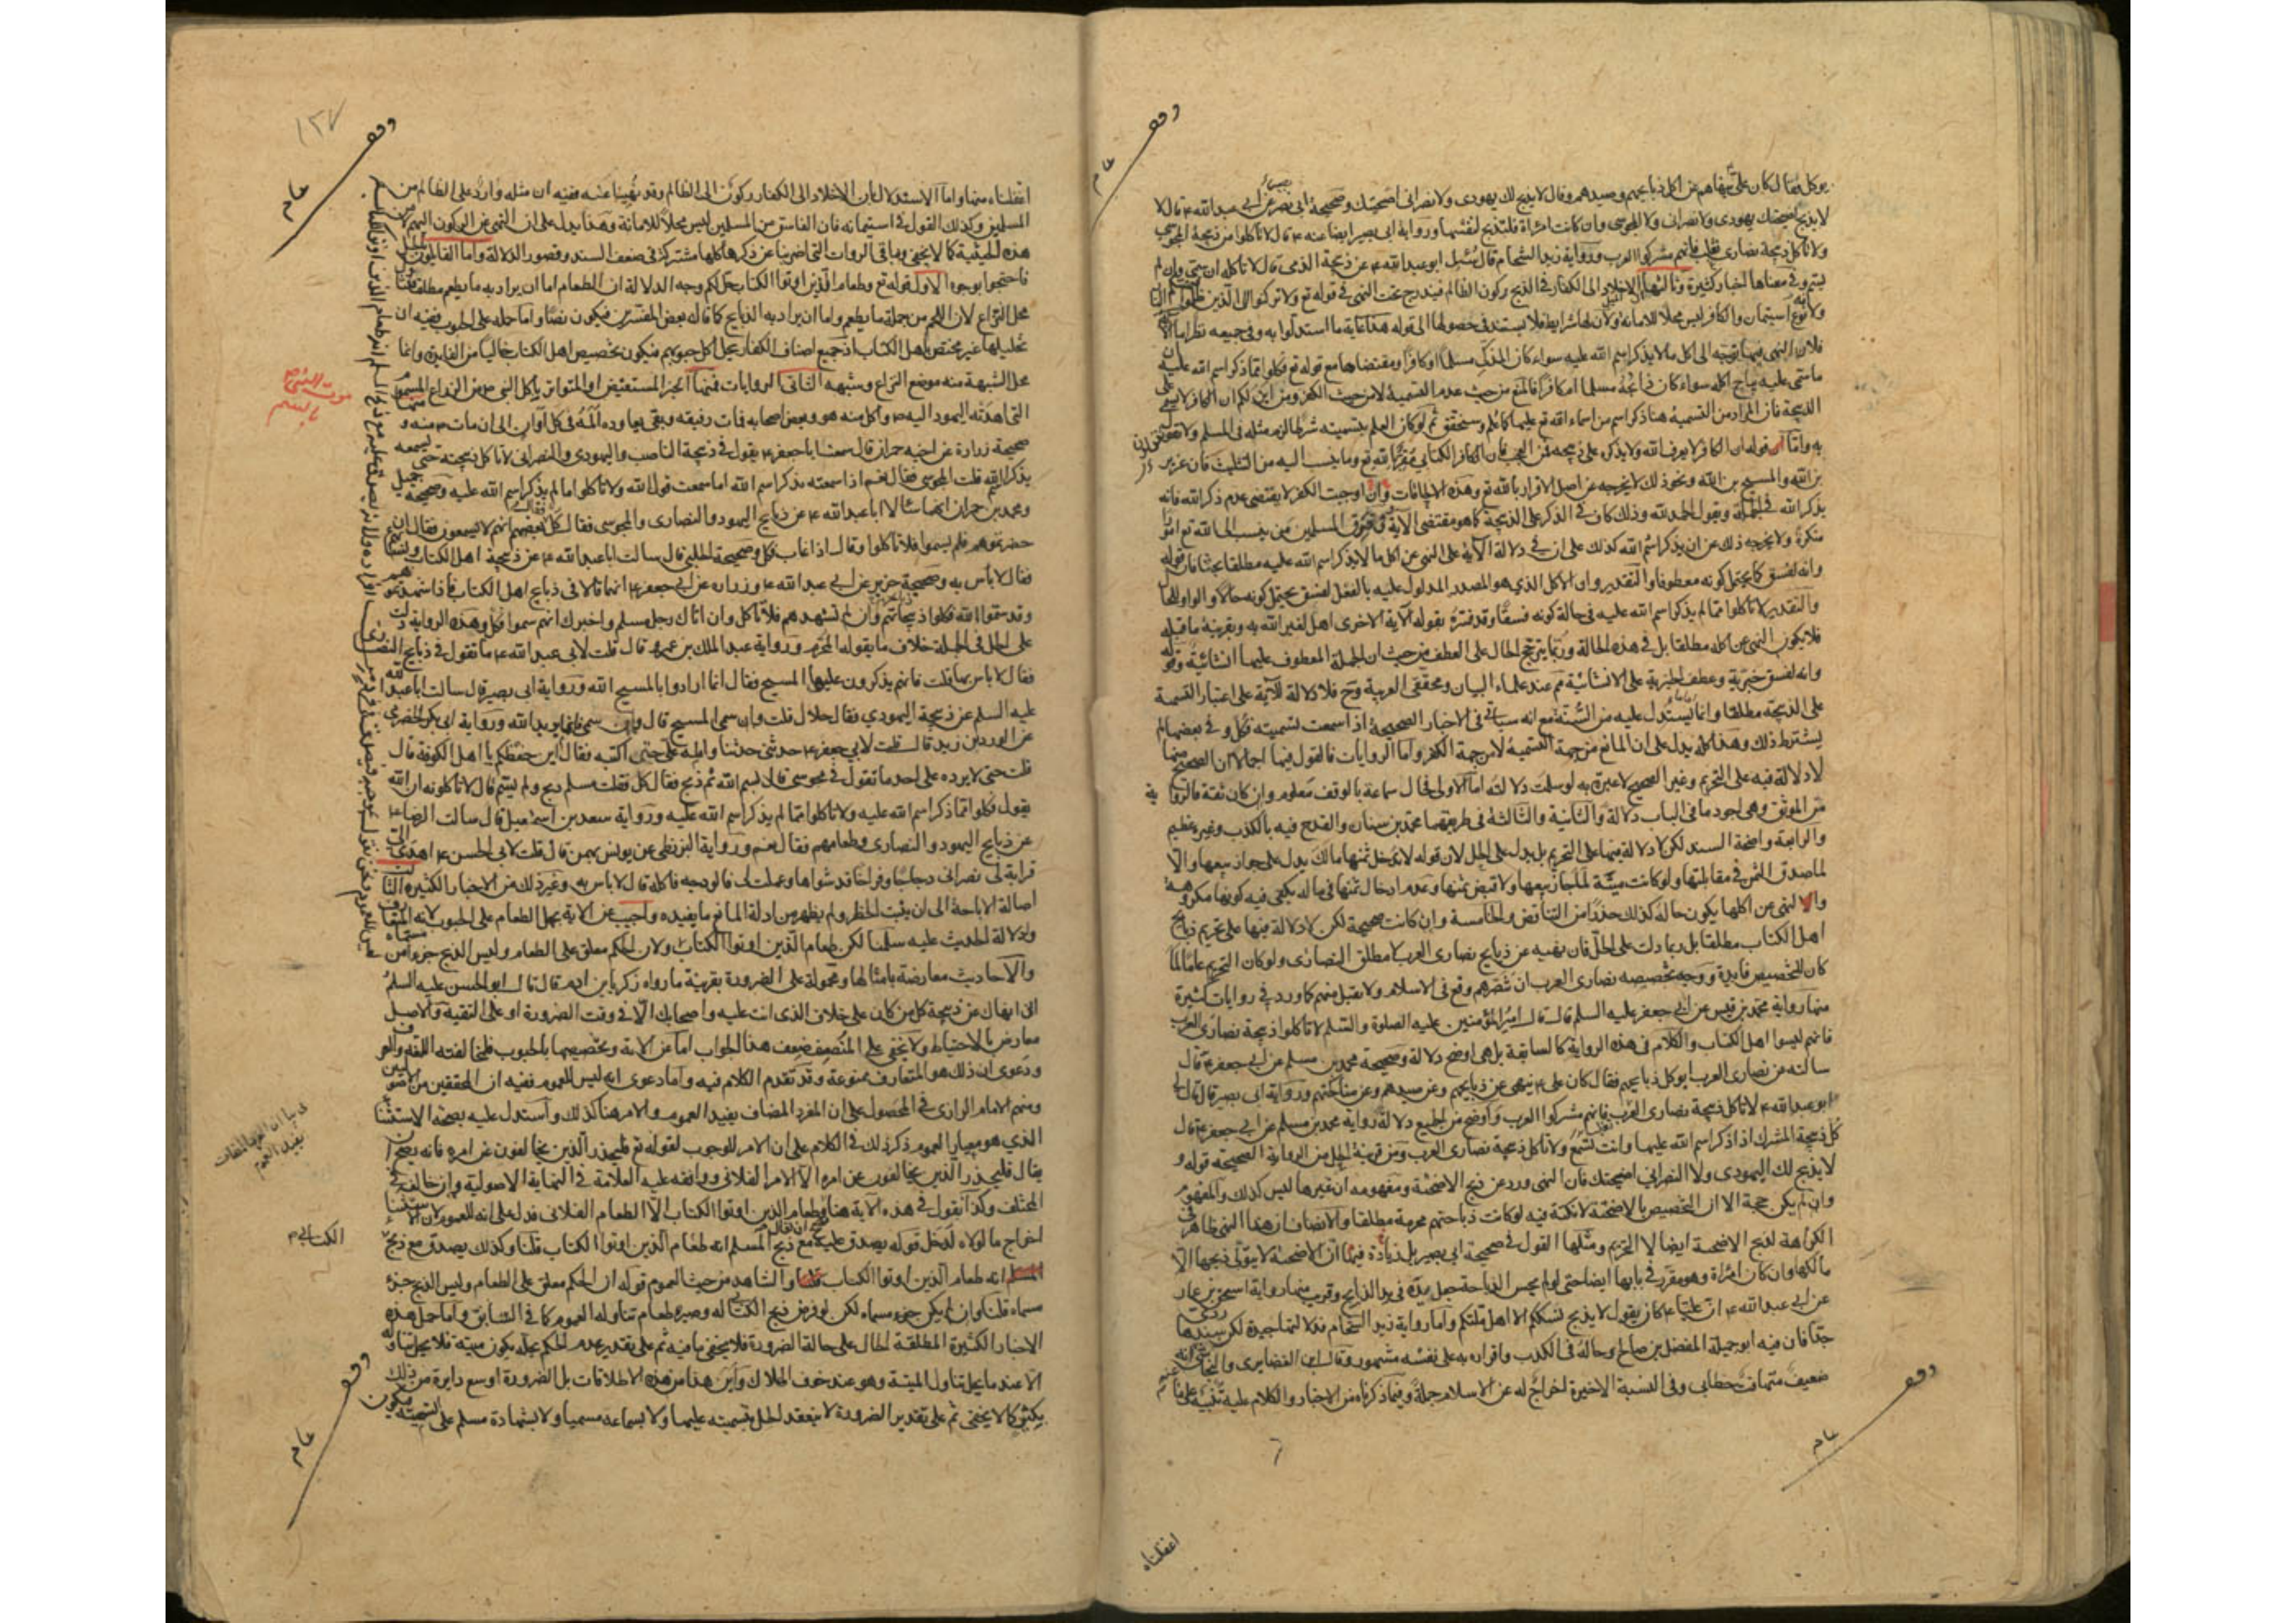 يوكل فقال كان علي ينهاهم عن اكل ذبايحهم وصيدهم وقال لا يذبح لك يهودي ولا نصراني اضحيتك وصحيحة ابي بصير عن ابي عبد الله ع قال لا
لا يذبح اضحيتك يهودي ولا نصراني ولا المجوسي وان كانت امراة فلتذبح لنفسها ورواية ابي بصير ايضا عنه ع قال لا تاكلوا من ذبيحة المجوسي
ولا تاكل ذبيحة نصارى تغلب فانهم مشركوا العرب ورواية زيد الشحام قال سئل ابو عبد الله ع عن ذبيحة الذمي قال لا تاكله ان سمى وان لم
يسم وفي معناها اخبار كثيرة وثالثها الاخلاد الى الكفار في الذبح ركون الى الظالم فيندرج تحت النهي في قوله تع ولا تركنوا الى الذين ظلموا
ولانه نوع استيمان والكافر ليس محلا للامانة ولان لها شرايط فلا يستند في حصولها الى قوله هذا غاية ما استدلوا به وفي جميعه نظر اما
فلان النهي فيها توجه الى اكل ما لا يذكر اسم الله عليه سواء كان المذكي مسلما او كافرا ومقتضاها مع قوله تع فكلوا مما ذكر اسم الله عليه
ما سمي عليه يباح اكله سواء كان ذابحه مسلما ام كافرا فالمنع من حيث عدم التسمية لا من حيث الكفر ومن اين لكم ان الكافر لا يسمي
الذبيحة فان المراد من التسمية هنا ذكر اسم من اسماء الله تع عليها كما علم وسيحقق ثم لو كان العلم بتسميته شرطا لزم مثله في المسلم ولا تقولون
به واما قوله ان الكافر لا يعرف الله ولا يذكره على ذبيحته فمن العجب فان الكافر الكتابي مقر بالله تع وما ينسب اليه من التثليث وان عزير
بن الله والمسيح بن الله ونحو ذلك لا يخرجه عن اصل الاقرار بالله تع وهذه الالحاقات وان اوجبت الكفر لا يقتضي عدم ذكر الله فانه
يذكر الله في الجملة ويقول الحمد لله وذلك كاف في الذكر على الذبيحة كما هو مقتضى الآية وفي فرق المسلمين من ينسب الى الله تع امورا
منكرة ولا يخرجه ذلك عن ان يذكر اسم الله كذلك على ان في دلالة الآية على النهي عن اكل ما لا يذكر اسم الله عليه مطلقا بحثا فان قوله
وانه لفسق كما يحتمل كونه معطوفا والتقدير وان الاكل الذي هو المصدر المدلول عليه بالفعل لفسق يحتمل كونه حالا والواو للحال
والتقدير لا تاكلوا مما لم يذكر اسم الله عليه في حالة كونه فسقا وقد فسره بقوله الآية الاخرى اهل لغير الله به وبقرينة ما قبله
فلا يكون النهي عن اكله مطلقا بل في هذه الحالة وربما يترجح الحال على العطف من حيث ان الجملة المعطوف عليها انشائية وقوله
وانه لفسق خبرية وعطف الخبرية على الانشائية مم عند علماء البيان ومحققي العربية وح فلا دلالة للآية على اعتبار التسمية
على الذبيحة مطلقا وانما يستدل عليه من السنة مع انه سياتي في الاخبار الصحيحة اذا سمعت تسميته فكل وفي بعضها لم
يشترط ذلك وهذا كله يدل على ان المانع من جهة التسمية لا من جهة الكفر واما الروايات فالقول فيها اجمالا ان الصحيح منها
لا دلالة فيه على التحريم وغير الصحيح لا عبرة به لو سلمت دلالته اما الاولى فحال سماعة بالوقف معلوم وان كان ثقة فالرواية
من الموثق وهي اجود ما في الباب دلالة والثانية والثالثة في طريقهما محمد بن سنان والقدح فيه بالكذب وغيره عظيم
والرابعة واضحة السند لكن لا دلالة فيها على التحريم بل يدل على الحل لان قوله لا تدخل ثمنها مالك يدل على جواز بيعها والا
لما صدق الثمن في مقابلتها ولو كانت ميتة لما جاز بيعها ولا قبض ثمنها وعدم ادخال ثمنها في ماله يكفي فيه كونها مكروهة
والنهي عن اكلها يكون حاله كذلك حذرا من التناقض والخامسة وان كانت صحيحة لكن لا دلالة فيها على تحريم ذبايح
اهل الكتاب مطلقا بل ربما دلت على الحل فان نهيه عن ذبايح نصارى العرب لا مطلق النصارى ولو كان التحريم عاما لما
كان للتخصيص فايدة ووجه تخصيصه نصارى العرب ان تنصرهم وقع في الاسلام ولا يقبل منهم كما ورد في روايات كثيرة
منها رواية محمد بن قيس عن ابي جعفر عليه السلم قال قال امير المؤمنين عليه الصلوة والسلم لا تاكلوا ذبيحة نصارى العرب
فانهم ليسوا اهل الكتاب والكلام في هذه الرواية كالسابقة بل هي اوضح دلالة وصحيحة محمد بن مسلم عن ابي جعفر ع قال
سالته عن نصارى العرب ايوكل ذبايحهم فقال كان علي ع ينهى عن ذبايحهم وعن صيدهم وعن مناكحتهم ورواية ابي بصير قال قال لي
ابو عبد الله ع لا تاكل ذبيحة نصارى العرب فانهم مشركوا العرب واوضح من الجميع دلالة رواية محمد بن مسلم عن ابي جعفر ع قال
كل ذبيحة المشرك اذا ذكر اسم الله عليها وانت تسمع ولا تاكل ذبيحة نصارى العرب ومن قرينة الحل من الرواية الصحيحة قوله و
لا يذبح لك اليهودي ولا النصراني اضحيتك فان النهي ورد عن ذبح الاضحية ومفهومه ان غيرها ليس كذلك والمفهوم
وان لم يكن حجة الا ان التخصيص بالاضحية لا نكتة فيه لو كانت ذباحتهم محرمة مطلقا والانصاف ان هذا النهي ظاهر في
الكراهة لذبح الاضحية ايضا لا التحريم ومثلها القول في صحيحة ابي بصير بل زيادة فيها ان الاضحية لا يتولى ذبحها الا
مالكها وان كان امراة وهو مقرر في بابها ايضا حتى لو لم يحسن الذباحة جعل يده في يد الذابح وقريب منها رواية اسحق بن عمار
عن ابي عبد الله ع ان عليا ع كان يقول لا يذبح نسككم الا اهل ملتكم واما رواية زيد الشحام فدلالتها جيدة لكن سندها ردي
جدا فان فيه ابو جميلة المفضل بن صالح وحاله في الكذب واقراره به على نفسه مشهور وقال ابن الغضايري والنجاشي انه
ضعيف متهافت خطابي وفي النسبة الاخيرة اخراج له عن الاسلام جملة وفيما ذكرناه من الاخبار والكلام عليه تنبيه على ما
اغفلناه
وقف
عام
وقف
عام
١٣٧
اغفلناه منها واما الاستدلال بان الاخلاد الى الكفار ركون الى الظالم وقد نهينا عنه ففيه ان مثله وارد على الظالم من
المسلمين وكذلك القول في استيمانه فان الفاسق من المسلمين ليس محلا للامانة وهذا يدل على ان النهي عن الركون اليهم لا من
هذه الحيثية كما لا يخفى وباقي الروات التي اضربنا عن ذكرها كلها مشتركة في ضعف السند وقصور الدلالة واما القايلون بالحل
فاحتجوا بوجوه الاول قوله تع وطعام الذين اوتوا الكتاب حل لكم وجه الدلالة ان الطعام اما ان يراد به ما يطعم مطلقا
محل النزاع لان اللحم من جملة ما يطعم واما ان يراد به الذبايح كما قال بعض المفسرين فيكون نصا واما حمله على الحبوب ففيه ان
تحليلها غير مختص باهل الكتاب اذ جميع اصناف الكفار يحل اكل حبوبهم فيكون تخصيص اهل الكتاب خاليا من الفايدة وانما
محل الشبهة منه موضع النزاع وشبهه الثاني الروايات فمنها الخبر المستفيض او المتواتر باكل النبي ص من الذراع المسموم
التي اهدته اليهود اليه ص واكل منه هو وبعض اصحابه فمات رفيقه وبقي يعاوده المه في كل اوان الى ان مات ص منه و
صحيحة زرارة عن اخيه حمران قال سمعت ابا جعفر ع يقول في ذبيحة الناصب واليهودي والنصراني لا تاكل ذبيحته حتى تسمعه
يذكر اسم الله قلت المجوسي فقال نعم اذا سمعته يذكر اسم الله اما سمعت قول الله ولا تاكلوا مما لم يذكر اسم الله عليه وصحيحة جميل
ومحمد بن حمران انهما سالا ابا عبد الله ع عن ذبايح اليهود والنصارى والمجوس فقال كل فقال بعضهم انهم لا يسمون فقال ان
حضرتموهم فلم يسموا فلا تاكلوا وقال اذا غاب فكل وصحيحة الحلبي قال سالت ابا عبد الله ع عن ذبيحة اهل الكتاب ونسائهم
فقال لا باس به وصحيحة حريز عن ابي عبد الله ع وزراره عن ابي جعفر ع انهما قالا في ذبايح اهل الكتاب فاذا شهدتموهم
وقد سموا الله فكلوا ذبايحهم وان لم تشهدهم فلا تاكل وان اتاك رجل مسلم واخبرك انهم سموا فكل وهذه الرواية دلت
على الحل في الجملة خلاف ما يقوله المحرم ورواية عبد الملك بن عمرو قال قلت لابي عبد الله ع ما تقول في ذبايح النصارى
فقال لا باس بها قلت فانهم يذكرون عليها المسيح فقال انما ارادوا بالمسيح الله ورواية ابي بصير قال سالت ابا عبد الله
عليه السلم عن ذبيحة اليهودي فقال حلال قلت وان سمى المسيح قال وان سمى فانما يريد الله ورواية ابي بكر الحضرمي
عن الورد بن زيد قال قلت لابي جعفر ع حدثني حديثا وامله علي حتى اكتبه فقال اين حفظكم يا اهل الكوفة قال
قلت حتى لا يرده علي احد ما تقول في مجوسي قال بسم الله ثم ذبح فقال كل فقلت مسلم ذبح ولم يسم قال لا تاكله ان الله
يقول فكلوا مما ذكر اسم الله عليه ولا تاكلوا مما لم يذكر اسم الله عليه ورواية سعد بن اسمعيل قال سالت الرضا ع
عن ذبايح اليهود والنصارى وطعامهم فقال نعم ورواية البزنطي عن يونس بهمن قال قلت لابي الحسن ع اهدى الي
قرابة لي نصراني دجاجا وفراخا قد شواها وعملت لي فالوذجه فاكله قال لا باس به وغير ذلك من الاخبار الكثيرة الثالث
اصالة الاباحة الى ان يثبت الحظر ولم يظهر من ادلة المانع ما يفيده واجيب عن الآية بحمل الطعام على الحبوب لانه المتعارف
ولدلالة الحديث عليه سلمنا لكن طعام الذين اوتوا الكتاب ولان الحكم معلق على الطعام وليس الذبح جزءا من مسماه
والاحاديث معارضة بامثالها ومحمولة على الضرورة بقرينة ما رواه زكريا بن ادم قال قال ابو الحسن عليه السلم
اني انهاك عن ذبيحة كل من كان على خلاف الذي انت عليه واصحابك الا في وقت الضرورة او على التقية والاصل
معارض بالاحتياط ولا يخفى على المنصف ضعف هذا الجواب اما عن الآية وتخصيصها بالحبوب فلمخالفته اللغة والعرف
ودعوى ان ذلك هو المتعارف ممنوعة وقد تقدم الكلام فيه واما دعوى انه ليس للعموم ففيه ان المحققين من الاصوليين
ومنهم الامام الرازي في المحصول على ان المفرد المضاف يفيد العموم والامر هنا كذلك واستدل عليه بصحة الاستثناء
الذي هو معيار العموم ذكر ذلك في الكلام على ان الامر للوجوب لقوله تع فليحذر الذين يخالفون عن امره فانه يصح ان
يقال فليحذر الذين يخالفون عن امره الا الامر الفلاني ووافقه عليه العلامة في النهاية الاصولية وان خالف في
المختلف وكذا نقول في هذه الآية هنا وطعام الذين اوتوا الكتاب الا الطعام الفلاني فدل على انه للعموم لان الاستثناء
اخراج ما لولاه لدخل قوله يصدق عليه مع ذبح المسلم انه طعام الذين اوتوا الكتاب قلنا وكذلك يصدق مع ذبح
المسلم انه طعام الذين اوتوا الكتاب قلنا والشاهد من حيث العموم قوله ان الحكم معلق على الطعام وليس الذبح جزء
مسماه قلنا وان لم يكن جزء مسماه لكن لو فرض ذبح الكتابي له وصيره طعام تناوله العموم كما في السابق واما حمل هذه
الاخبار الكثيرة المطلقة الحال على حالة الضرورة فلا يخفى ما فيه ثم على تقدير عدم الحكم بحله يكون ميتة فلا يحل تناوله
الا عند ما يحل تناول الميتة وهو عند خوف الهلاك واين هذا من هذه الاطلاقات بل الضرورة اوسع دايرة من ذلك
بكثير كما لا يخفى ثم على تقدير الضرورة لا ينعقد الحل بتسميته عليها ولا بسماعه مسميا ولا بشهادة مسلم على التسميته فيكون
موت النبي ص
بالسم
يفيد العموم
الكتابي م
وقف
عام
وقف
عام